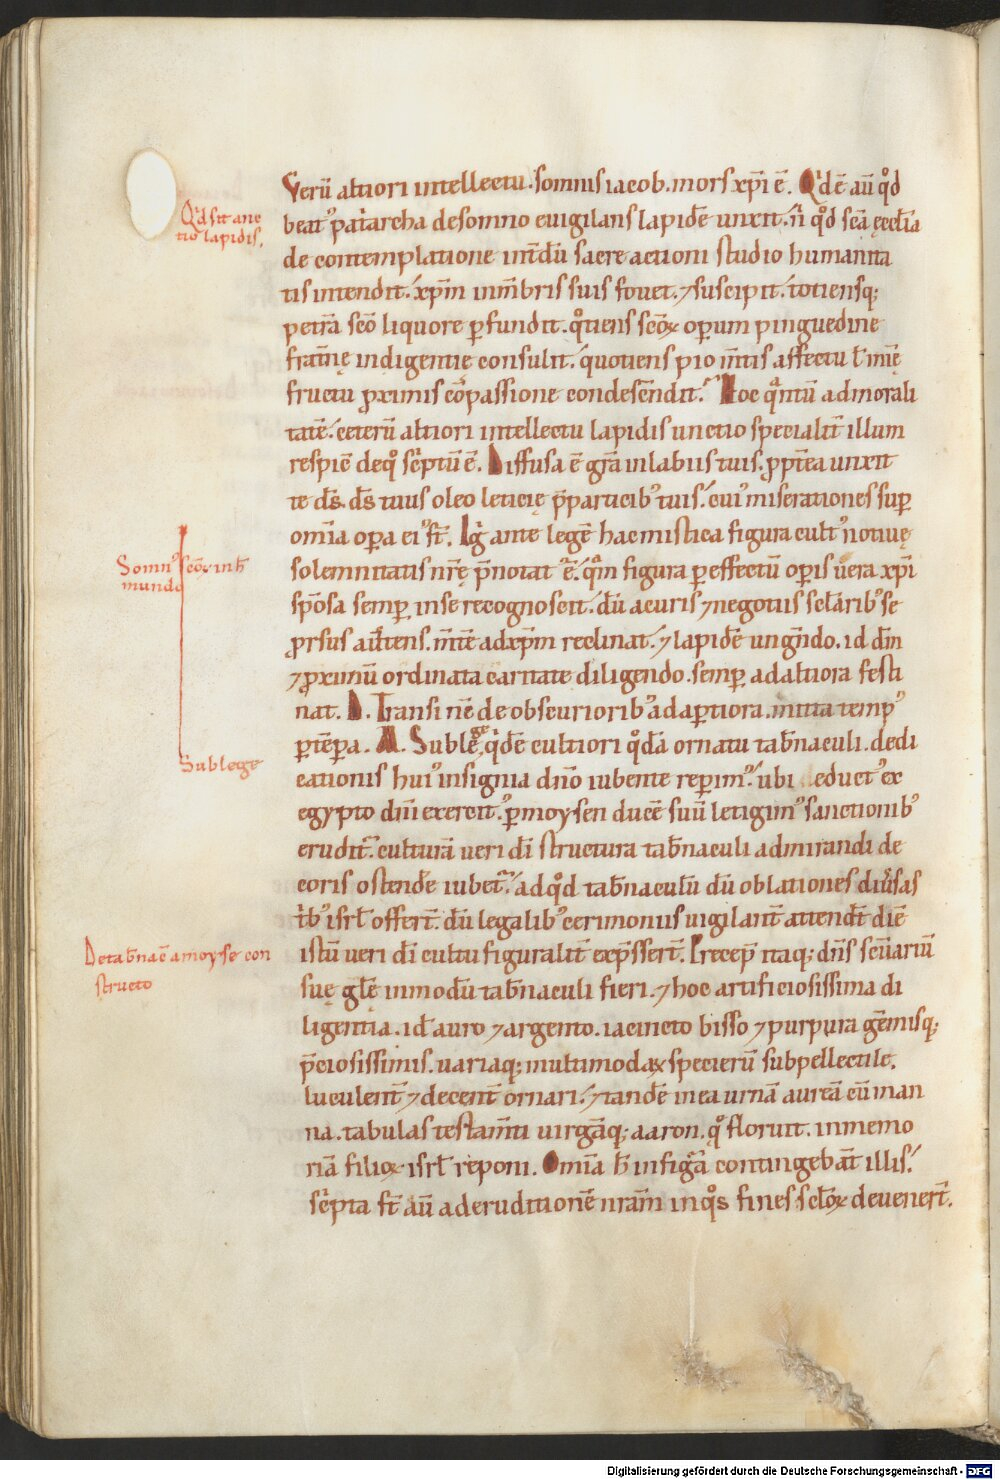 Verū altiori intellectu. somnus iacob. mors xp̄i ē. Qͥd ē aū qͦd
beatꝰ patͥarcha de somno euigilans lapidē unxit. n̄ qͦd scā ęcctīa
de contemplatione int̄dū sacre actioni studio humanita
tis intendit. xp̄m in mēbris suis fouet. ⁊ suscipit. totiensq;
petrā scō liquore ꝑfundit. qͦtiens scōꝝ opeꝝum pinguedine
frat̄nę indigentię consulit. quotiens pio m̄tis affectu ł inīę
fructu ꝓximis cōpassione condescendit. Hoc qͣntū ad morali
tatē. ceterū altiori intellectu lapidis unctio specialit̄ illum
respic̄ de qͦ sc̄ptū ē. Diffusa ē grā in labiis tuis. ꝓpt̄ea unxit
te d̄s. d̄s tuus oleo leticię p̄ particibꝰ tuis. cuiꝰ miserationes suꝑ
om̄ia oꝑa eiꝰ st̄. Igͥ ante legē hac mistica figura cultꝰ uotiuę
solemnitatis nr̄ę p̄notatꝰ ē. qͣm figura ꝑ effectū oꝑis uera xp̄i
spōsa semꝑ in se recognoscit. dū a curis ⁊ negotiis sct̄aribꝰ se
ꝓrsus auertens. m̄tē ad xp̄m reclinat. ⁊ lapidē ungēdo. id dm̄
⁊ ꝓximū ordinata caritate diligendo. semꝑ ad altiora festi
nat. D. Transi nc̄ de obscurioribꝰ ad aꝑtiora. mitta tempꝰ
ꝑ tēpora. M. Sub legē qͥdē cultiori qͦdā ornatu tab̄naculi. dedi
cationis huiꝰ insignia dn̄o iubente reperimꝰ. ubi eductꝰ ex
egypto dn̄i exercitꝰ ꝑ moysen ducē suū letigim̄ꝰ sanctionibꝰ
eruditr̄. culturā ueri dī structura tab̄naculi admirandi de
coris ostendē iubetr̄. ad qͦd tab̄naculū dū oblationes diūsas
tͥbꝰ isrł offerr̄t. dū legalibꝰ cerimoniis uigilant̄ attendēt diē
istū ueri dī cultu figuralit̄ exp̄sserr̄t. Precep̄ itaq; dn̄s scūariū
suę gl̄ę in modū tab̄naculi fieri. ⁊ hoc artificiosissima di
ligentia. id̄ auro ⁊ argento. iacincto bisso ⁊ purpura gēmisq;
p̄ciosissimis. uariaq; multimodaꝝ specierū subpellectile.
luculent̄ ⁊ decent̄ ornari. ⁊ tandē in ea urnā aureā cū man
na. tabulas testam̄ti uirgāq; aaron. qͦ floruit. in memo
riā filioꝝ isrł reponi. Omīa h̄ in figͣa contingebāt illis.
scͥpta st̄ aū ad eruditionē nrām in qͦs fines sct̄oꝝ deuener̄t.
Qͥd sit unc
tio lapidis.
Somnꝰ scōꝝ in h̄
mundo
Sub lege
De tab̄nac̄ a moyse con
structo
Digitalisierung gefördert durch die Deutsche Forschungsgemeinschaft - DFG